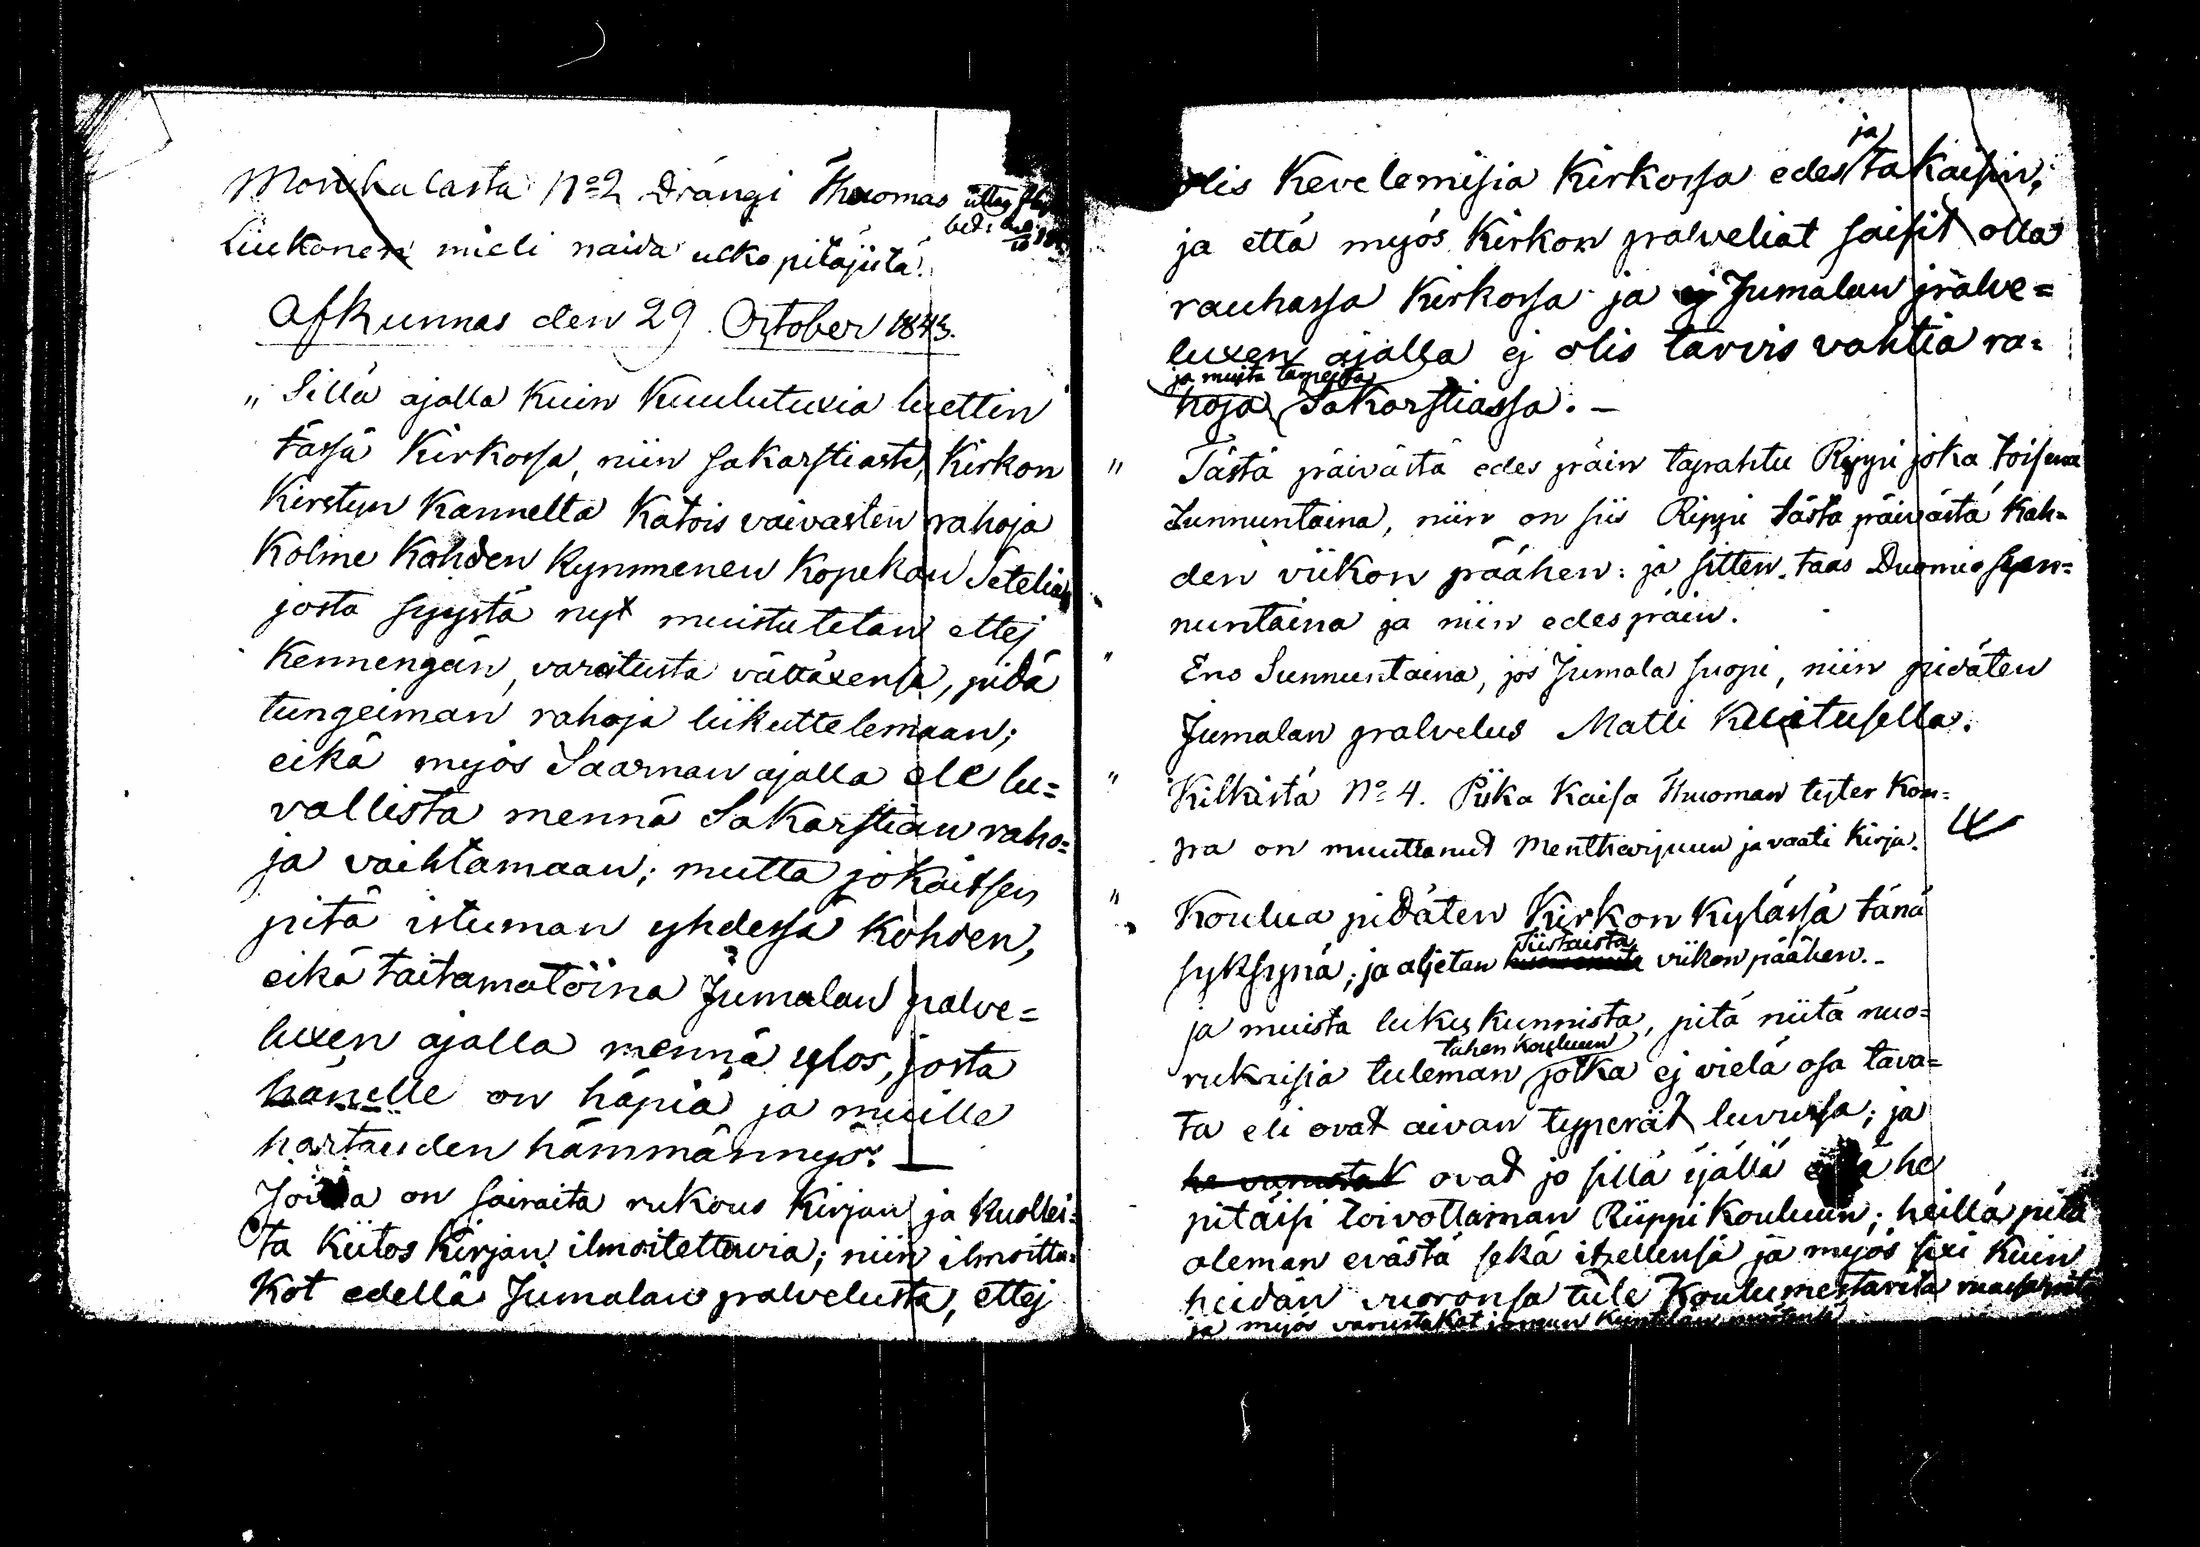 Monkalasta No 2 Drängi Thuomas
Liukonen mieli naida ulkopitäjistä.
Afkunnas den 29 October 1843.
„ Sillä ajalla kuin kuulutuxia luettin
tässä Kirkossa, niin sakarstiasta, Kirkon
Kirstun kannelta katois vaivasten rahoja
kolme kahden kymmenen kopekan Seteliä
josta syystä nyt muistutetan ettej
kennengän, varoitusta välttäxensä, pidä
tungeiman rahoja liikuttelemaan;
eikä myös Saarnan ajalla ole lu=
vallista mennä Sakarstian raho=
ja vaihtamaan; mutta jokaitsen
pitä istuman yhdessä kohden,
eikä taitamatöina Jumalan palve=
luxen ajalla mennä ulos, josta
hänelle on häpiä ja muille
hartauden hämmännys. —
Joilla on sairaita rukous kirjan ja kuollei=
ta kiitos kirjan ilmoitettavia; niin ilmoitta=
kot edellä Jumalan palvelusta, ettej
olis kevelemisiä kirkossa edes ja takaisin,
ja että myös kirkon palveliat saisit olla
rauhassa kirkossa ja ej Jumalan palve=
luxen ajalla ej olis tarvis vahtia ra=
ja muita tapeita
hoja Sakarstiassa. —
„ Tästä päivästä edes päin tapahtu Rippi joka toisena
Sunnuntaina, niin on siis Rippi tästä päivästä kah=
den viikon päähen: ja sitten taas Duomio sun=
nuntaina ja niin edespäin.
„ Ens Sunnuntaina, jos Jumala suopi, niin pidäten
Jumalan palvelus Matti Kuitusella.
„ Kilkistä No 4. Piika Kaisa Thuoman tyter Kom=
pa on muuttanut Mentharjuun ja vaati kirja.
„ Koulua pidäten Kirkon kylässä tänä
Tiistaista
syksynä; ja aljetan viikon päähen. –
ja muista lukukunnista, pitä niitä nuo=
tähen Kouluun
rukaisia tuleman jotka ej vielä osa tava=
ta eli ovat aivan typerät luvussa; ja
he varustak ovat jo sillä ijällä että he
pitäisi toivottaman Rippi Kouluun; heillä pitä
oleman evästä sekä itzellensä ja myös sixi kuin
heidän vuoronsa tule Koulumestarita
ja myös varustakot